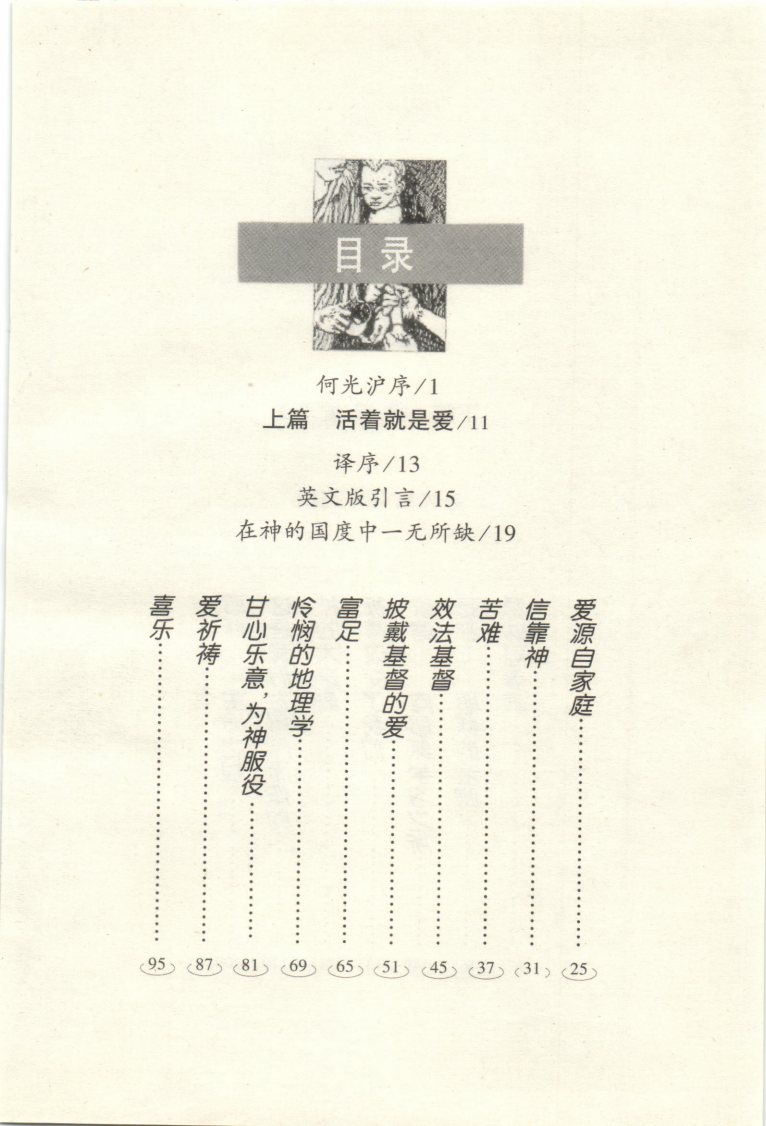 目录
何光沪序/1
上篇 活着就是爱/11
译序/13
英文版引言/15
在神的国度中一无所缺/19
爱源自家庭……25
信靠神……31
苦难……37
效法基督……45
披戴基督的爱……51
富足……65
怜悯的地理学……69
甘心乐意,为神服役……81
爱祈祷……87
喜乐……95